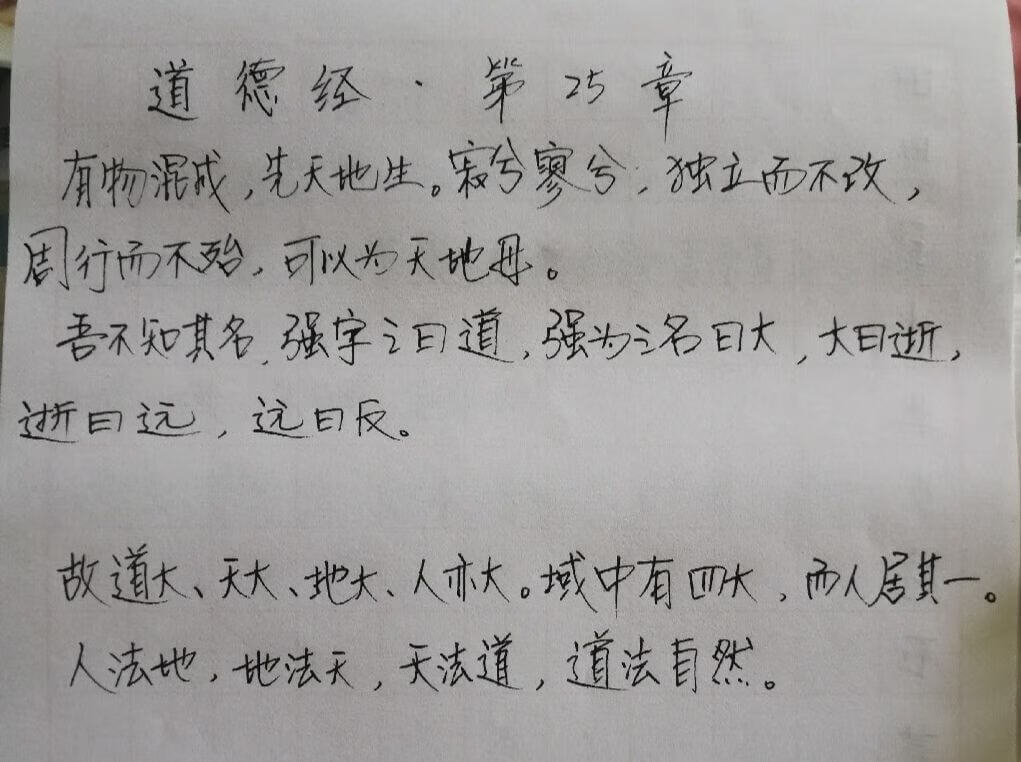 道德经·第25章
有物混成,先天地生。寂兮寥兮,独立而不改,
周行而不殆,可以为天地母。
吾不知其名,强字之曰道,强为之名曰大,大曰逝,
逝曰远,远曰反。
故道大、天大、地大、人亦大。域中有四大,而人居其一。
人法地,地法天,天法道,道法自然。